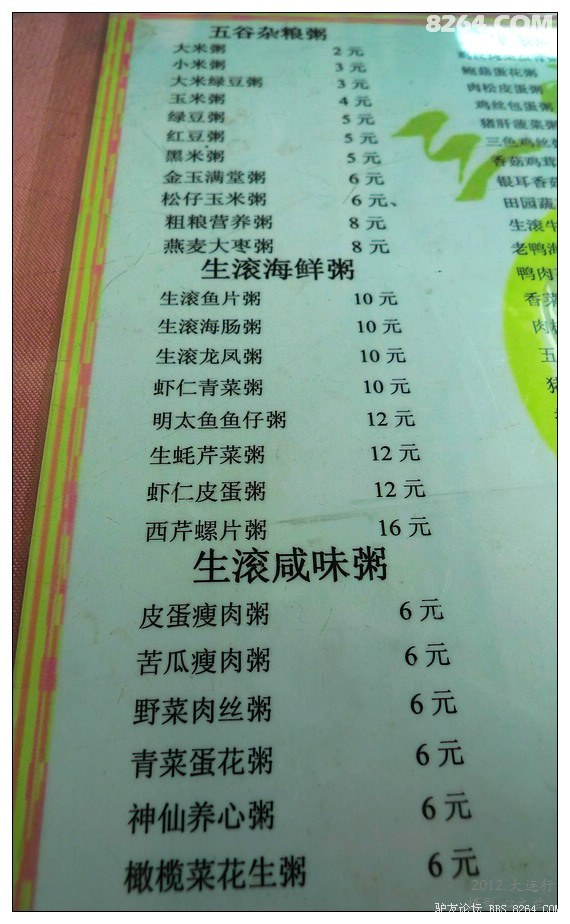 8264.COM
五谷杂粮粥
大米粥 2 元
小米粥 3 元
大米绿豆粥 3 元
玉米粥 4 元
绿豆粥 5 元
红豆粥 5 元
黑米粥 5 元
金玉满堂粥 6 元
松仔玉米粥 6 元、
粗粮营养粥 8 元
燕麦大枣粥 8 元
生滚海鲜粥
生滚鱼片粥 10 元
生滚海肠粥 10 元
生滚龙凤粥 10 元
虾仁青菜粥 10 元
明太鱼鱼仔粥 12 元
生蚝芹菜粥 12 元
虾仁皮蛋粥 12 元
西芹螺片粥 16 元
生滚咸味粥
皮蛋瘦肉粥 6 元
苦瓜瘦肉粥 6 元
野菜肉丝粥 6 元
青菜蛋花粥 6 元
神仙养心粥 6 元
橄榄菜花生粥 6 元
鲍菇蛋花粥
肉松皮蛋粥
鸡丝包蛋粥
猪肝菠菜粥
三色鸡丝粥
香菇鸡茸
银耳香菇
田园蔬
生滚牛
老鸭海
鸭肉
香菜
肉
五
猪
2012.大连行
驴友论坛 BBS.8264.COM